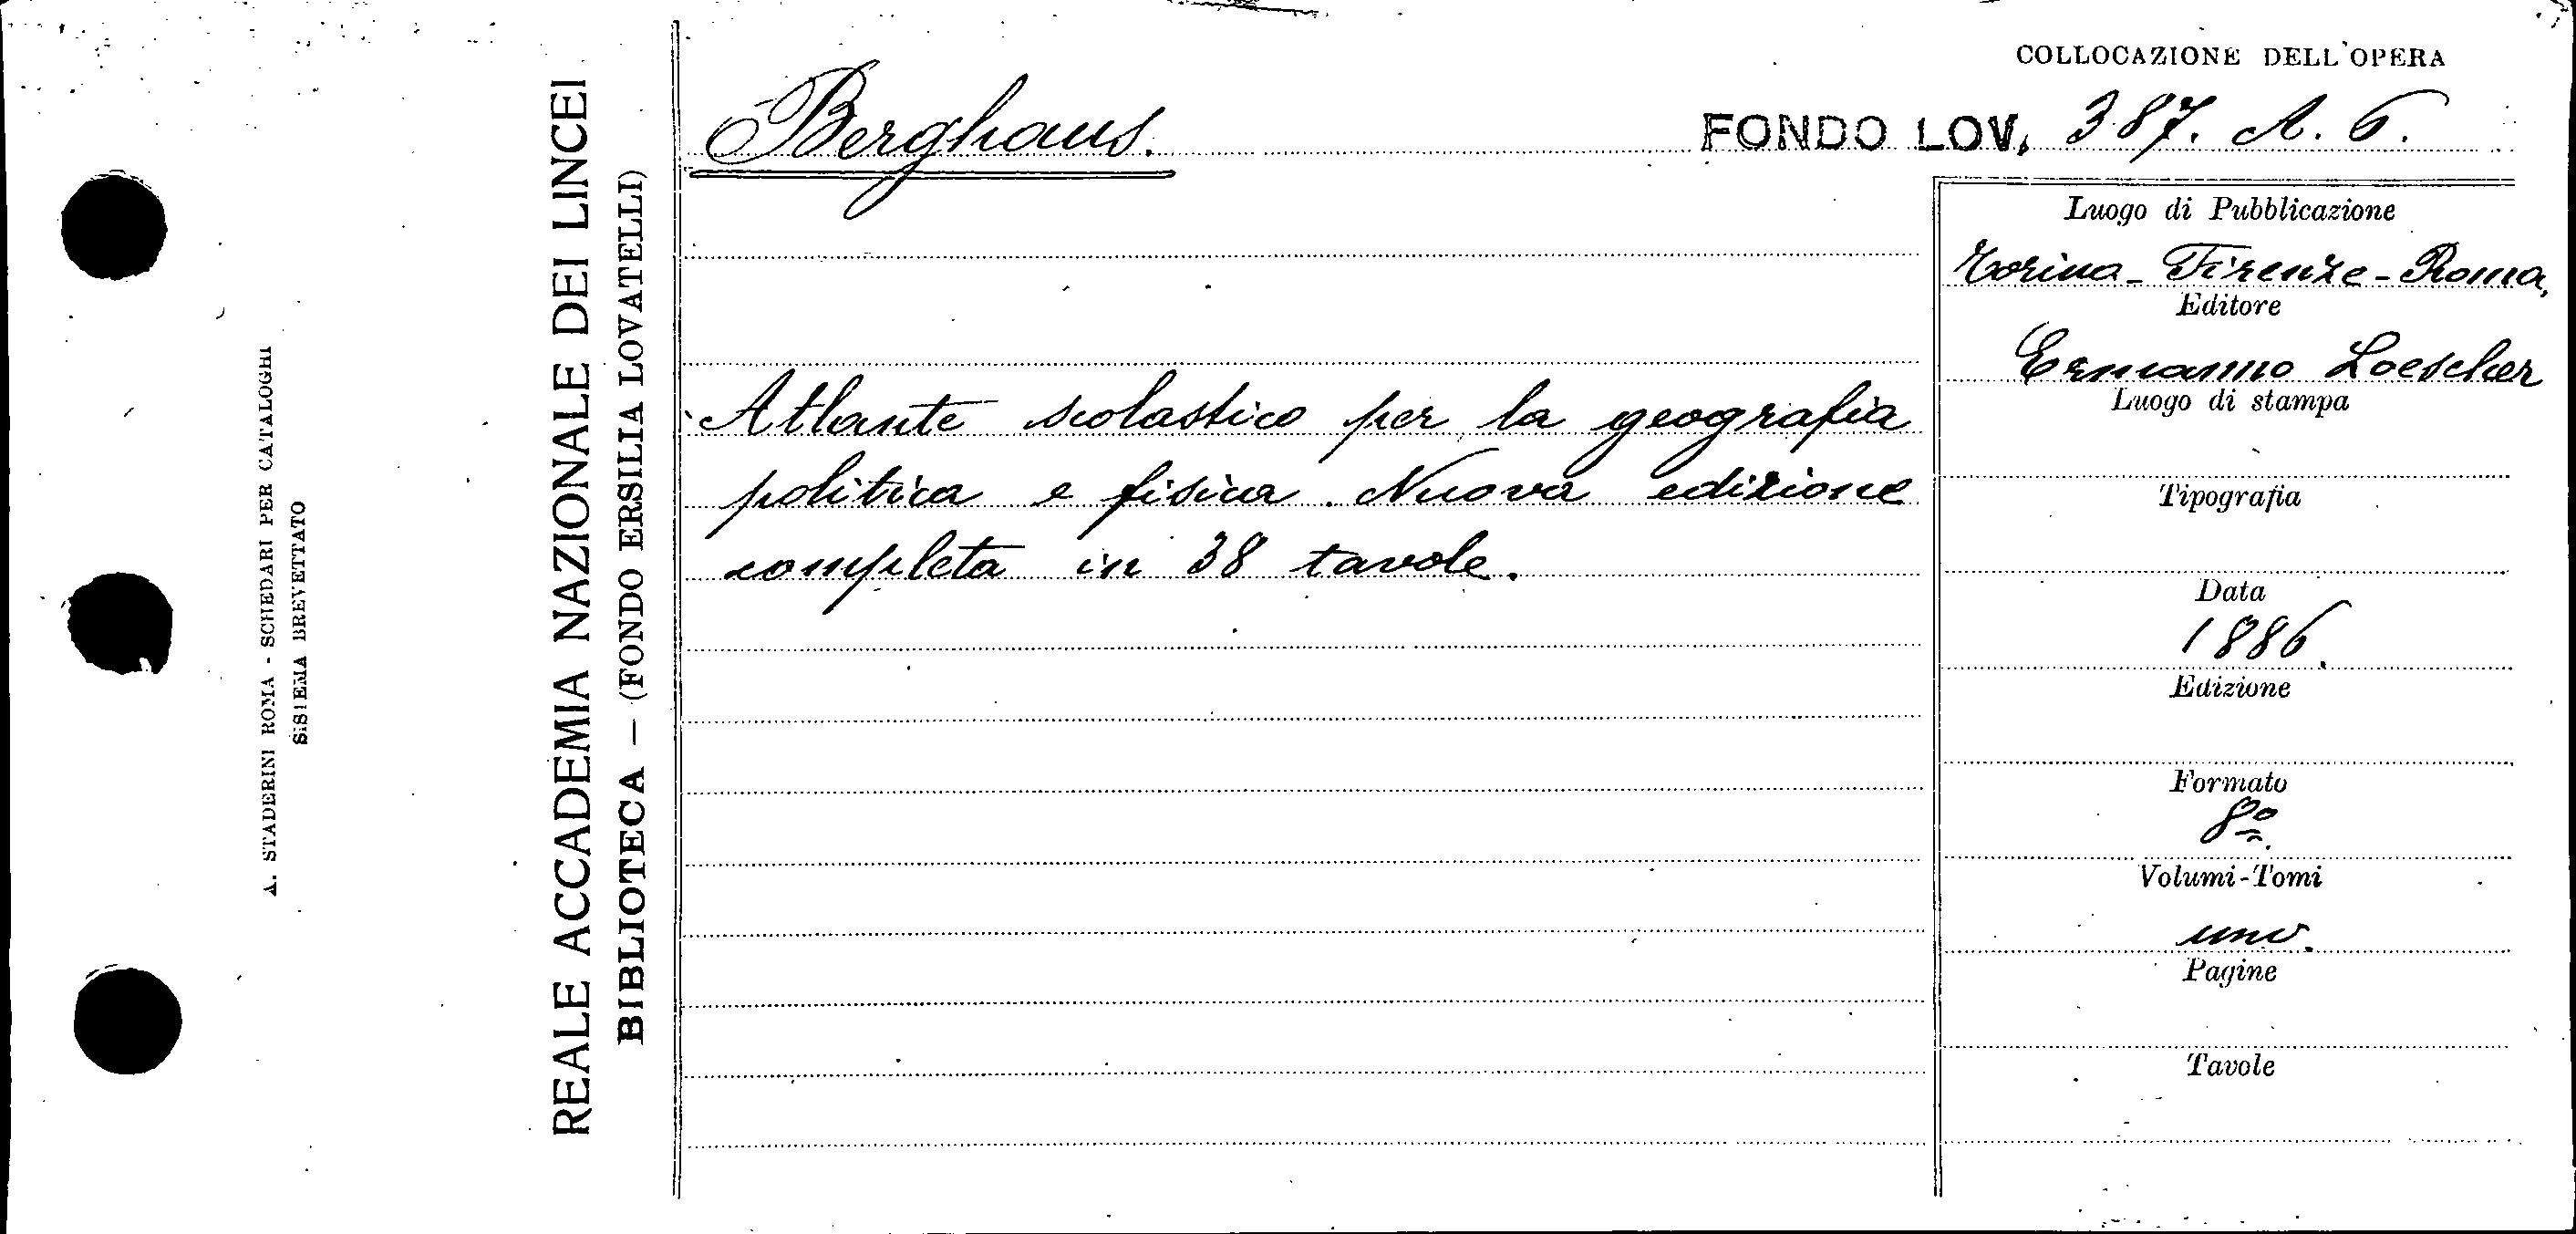 A. STADERINI ROMA - SCHEDARI PER CATALOGHI
SISTEMA BREVETTATO
REALE ACCADEMIA NAZIONALE DEI LINCEI
BIBLIOTECA — (FONDO ERSILIA LOVATELLI)
COLLOCAZIONE DELL'OPERA
Berghaus.
FONDO LOV. 387. A. 6.
Atlante scolastico per la geografia
politica e fisica. Nuova edizione
completa in 38 tavole.
Luogo di Pubblicazione
Torino - Firenze - Roma,
Editore
Ermanno Loescher
Luogo di stampa
Tipografia
Data
1886.
Edizione
Formato
8º
Volumi-Tomi
uno.
Pagine
Tavole